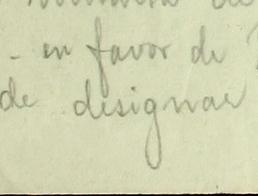 de
- en favor de
de designar